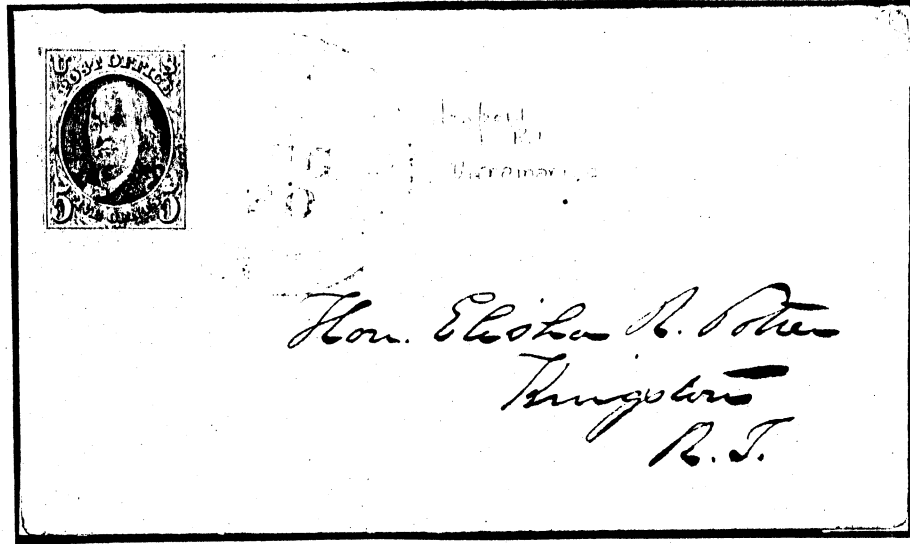 U S
POST OFFICE
FIVE CENTS
5
Hon. Elisha R. Potter
Kingston
R. I.